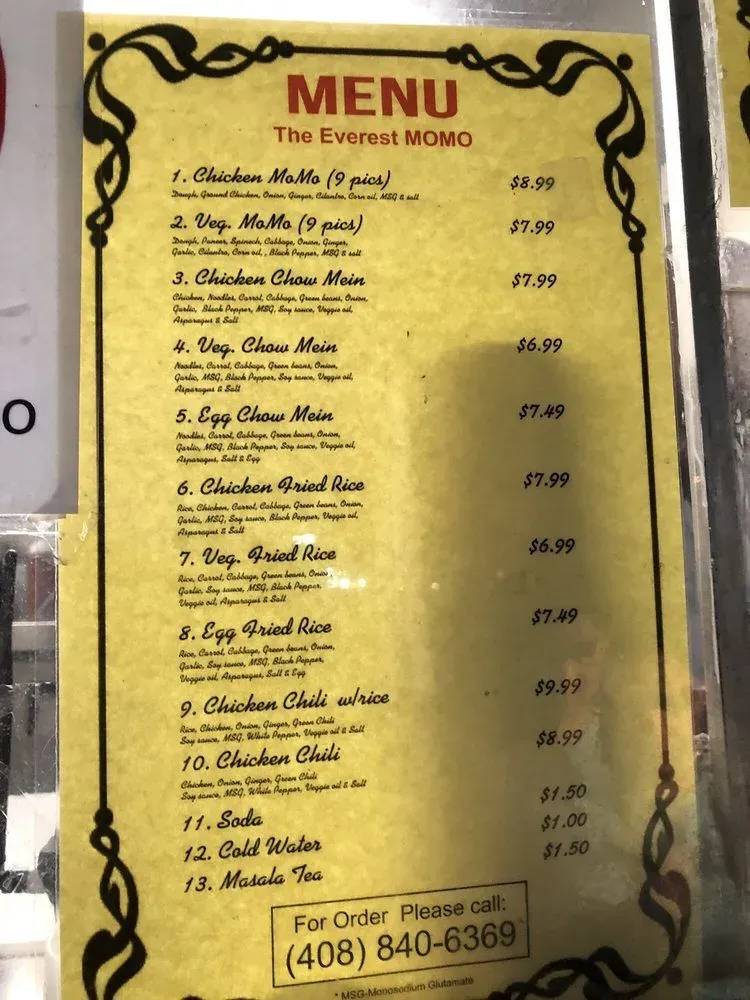 MENU
The Everest MOMO
1. Chicken MoMo (9 pics) $8.99
Dough, Ground Chicken, Onion, Ginger, Cilantro, Corn oil, MSG & salt
2. Veg. MoMo (9 pics) $7.99
Dough, Paneer, Spinach, Cabbage, Onion, Ginger,
Garlic, Cilantro, Corn oil, , Black Pepper, MSG & salt
3. Chicken Chow Mein $7.99
Chicken, Noodles, Carrot, Cabbage, Green beans, Onion,
Garlic, Black Pepper, MSG, Soy sauce, Veggie oil,
Asparagus & Salt
4. Veg. Chow Mein $6.99
Noodles, Carrot, Cabbage, Green beans, Onion,
Garlic, MSG, Black Pepper, Soy sauce, Veggie oil,
Asparagus & Salt
5. Egg Chow Mein $7.49
Noodles, Carrot, Cabbage, Green beans, Onion,
Garlic, MSG, Black Pepper, Soy sauce, Veggie oil,
Asparagus, Salt & Egg
6. Chicken Fried Rice $7.99
Rice, Chicken, Carrot, Cabbage, Green beans, Onion,
Garlic, MSG, Soy sauce, Black Pepper, Veggie oil,
Asparagus & Salt
7. Veg. Fried Rice $6.99
Rice, Carrot, Cabbage, Green beans, Onion,
Garlic, Soy sauce, MSG, Black Pepper,
Veggie oil, Asparagus & Salt
8. Egg Fried Rice $7.49
Rice, Carrot, Cabbage, Green beans, Onion,
Garlic, Soy sauce, MSG, Black Pepper,
Veggie oil, Asparagus, Salt & Egg
9. Chicken Chili w/rice $9.99
Rice, Chicken, Onion, Ginger, Green Chili
Soy sauce, MSG, White Pepper, Veggie oil & Salt
10. Chicken Chili $8.99
Chicken, Onion, Ginger, Green Chili
Soy sauce, MSG, White Pepper, Veggie oil & Salt
11. Soda $1.50
12. Cold Water $1.00
13. Masala Tea $1.50
For Order Please call:
(408) 840-6369
* MSG-Monosodium Glutamate
O